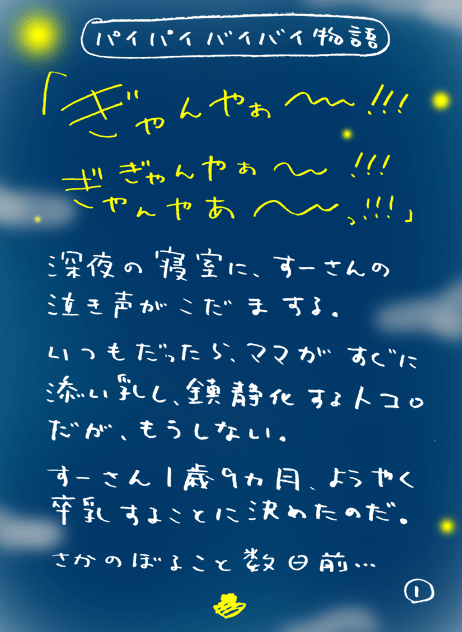 パイパイバイバイ物語
「ぎゃんやぁ〜〜!!!
ぎぎゃんやぁ〜〜!!!
ぎゃんやあ〜〜〜っ!!!」
深夜の寝室に、すーさんの
泣き声がこだまする。
いつもだったら、ママがすぐに
添い乳し、鎮静化するトコロ
だが、もうしない。
すーさん1歳9カ月、ようやく
卒乳することに決めたのだ。
さかのぼること数日前…
1